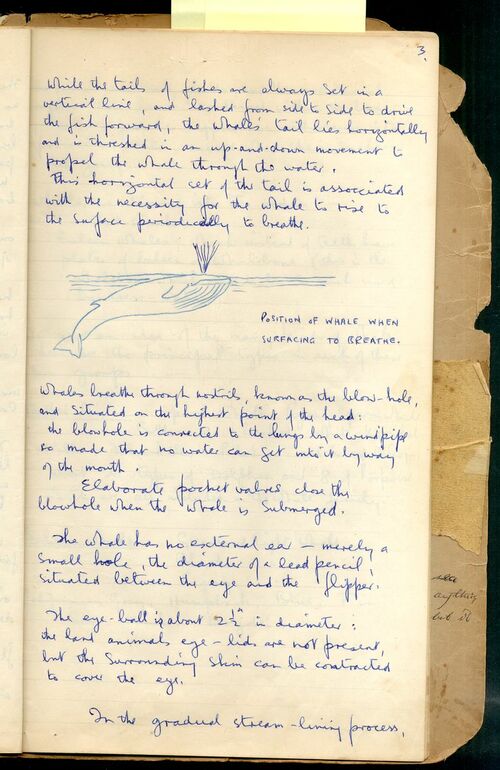 3.
While the tails of fishes are always set in a
vertical line, and lashed from side to side to drive
the fish forward, the whales' tail lies horizontally
and is threshed in an up-and-down movement to
propel the whale through the water.
This horizontal set of the tail is associated
with the necessity for the whale to rise to
the surface periodically to breathe.
POSITION OF WHALE WHEN
SURFACING TO BREATHE.
Whales breathe through nostrils, known as the blow-hole,
and situated on the highest point of the head:
the blowhole is connected to the lungs by a windpipe
so made that no water can get into it by way
of the mouth.
Elaborate pocket valves close the
blowhole when the whale is submerged.
The whale has no external ear — merely a
small hole, the diameter of a lead pencil,
situated between the eye and the flipper.
The eye-ball is about 2½" in diameter:
the land animals eye-lids are not present,
but the surrounding skin can be contracted
to cover the eye.
In the gradual stream-lining process,
sea
anything
but it